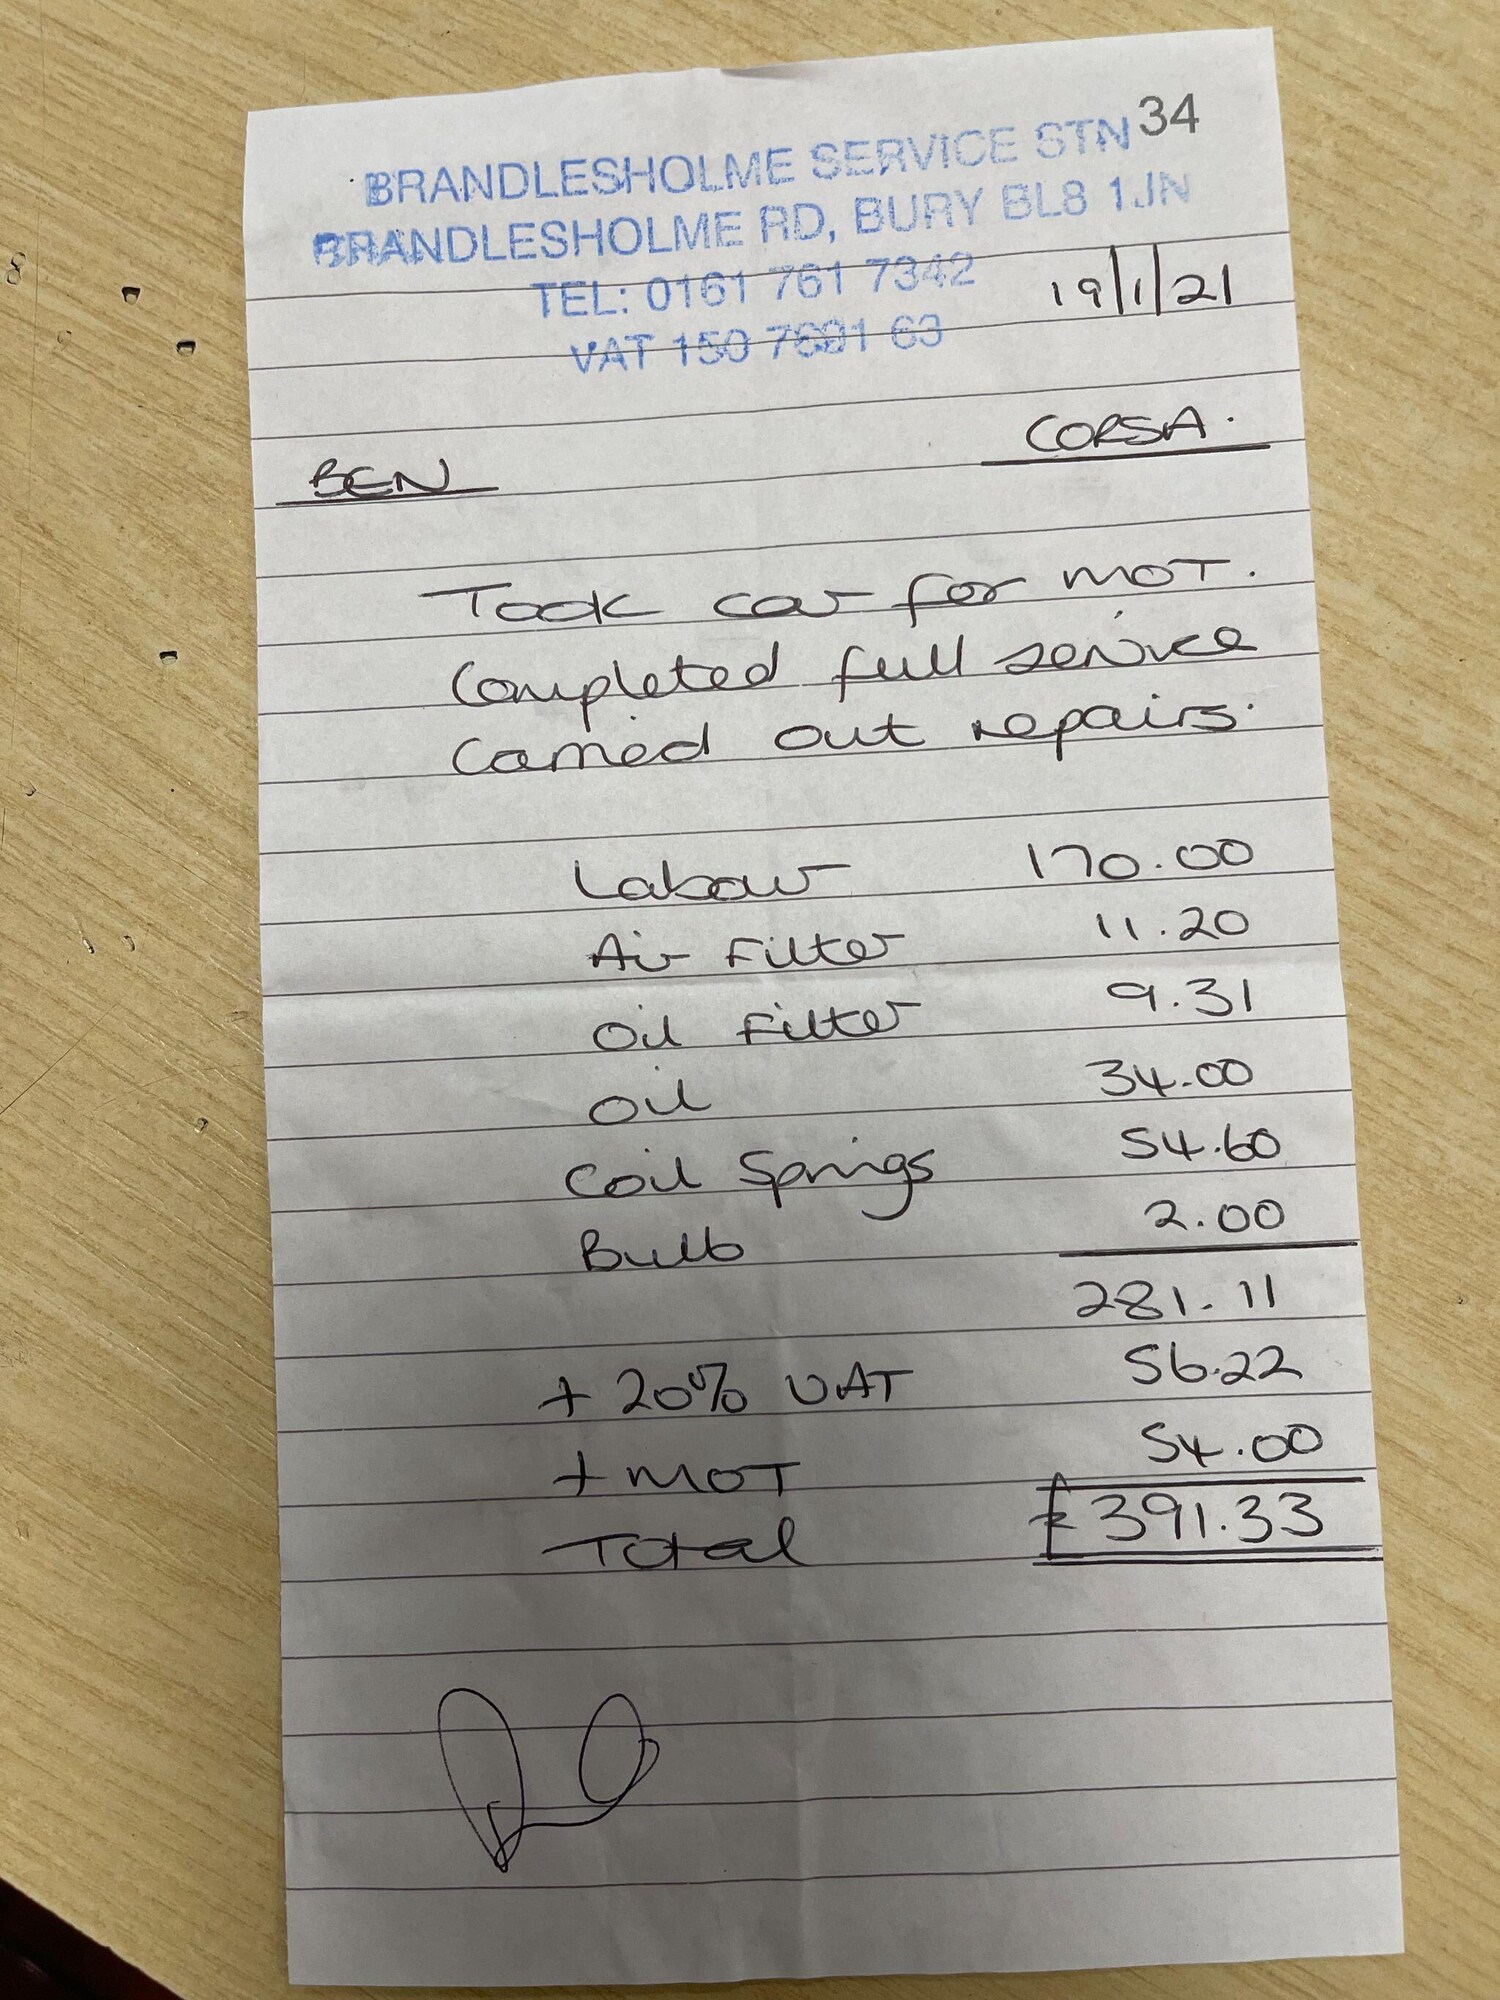 34
BRANDLESHOLME SERVICE STN
BRANDLESHOLME RD, BURY BL8 1JN
TEL: 0161 761 7342
VAT 150 7681 63
19/1/21
BEN CORSA.
Took car for MOT.
Completed full service
Carried out repairs.
Labour 170.00
Air Filter 11.20
Oil Filter 9.31
Oil 34.00
Coil Springs 54.60
Bulb 2.00
281.11
+ 20% VAT 56.22
+ MOT 54.00
Total £391.33